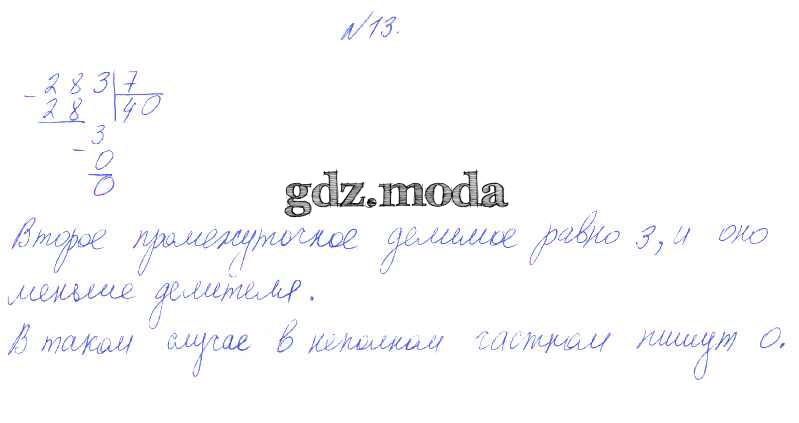 №13.
- 283 | 7
28 | 40
- 3
0
0
gdz.moda
Второе промежуточное делимое равно 3, и оно
меньше делителя.
В таком случае в неполном частном пишут 0.